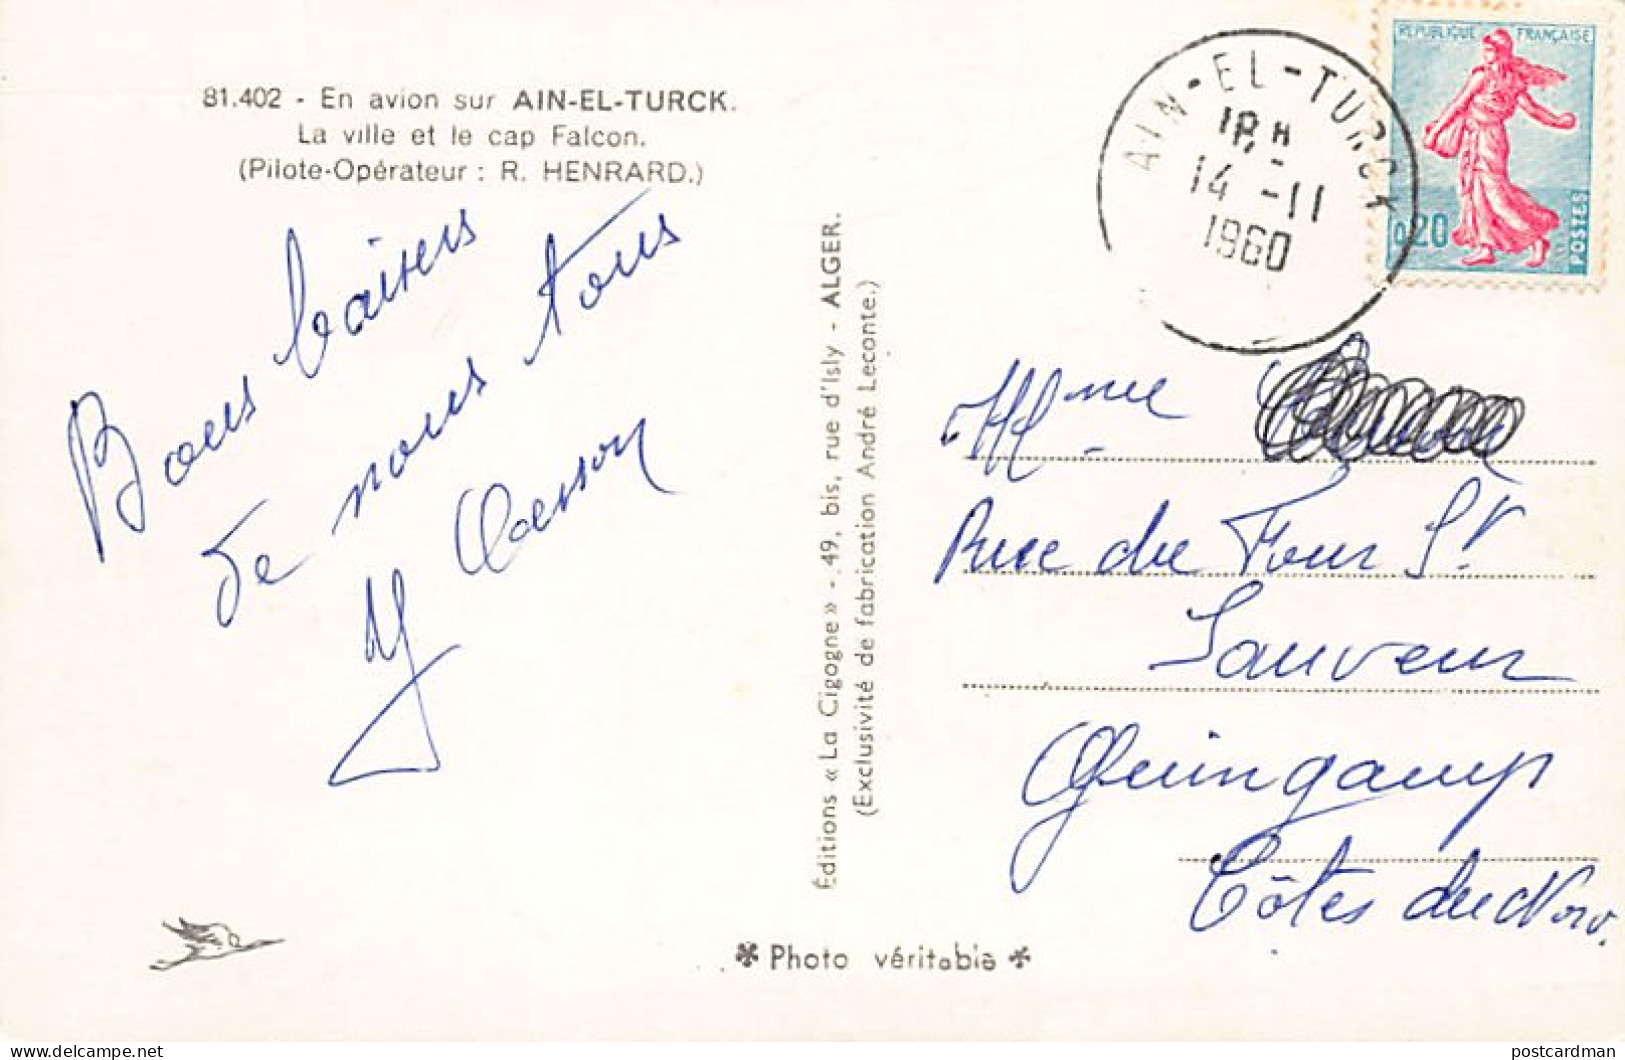 81.402 - En avion sur AIN-EL-TURCK.
La ville et le cap Falcon.
(Pilote-Opérateur : R. HENRARD.)
Bons baisers
de nous tous
Éditions « La Cigogne » - 49, bis, rue d'Isly - ALGER.
(Exclusivité de fabrication André Leconte.)
REPUBLIQUE FRANÇAISE
0,20
POSTES
AIN-EL-TURCK
18 H
14 -11
1960
Mme
Rue du Four St
Sauveur
Guingamp
Côtes du Nord.
* Photo véritable *
delcampe.net
postcardman